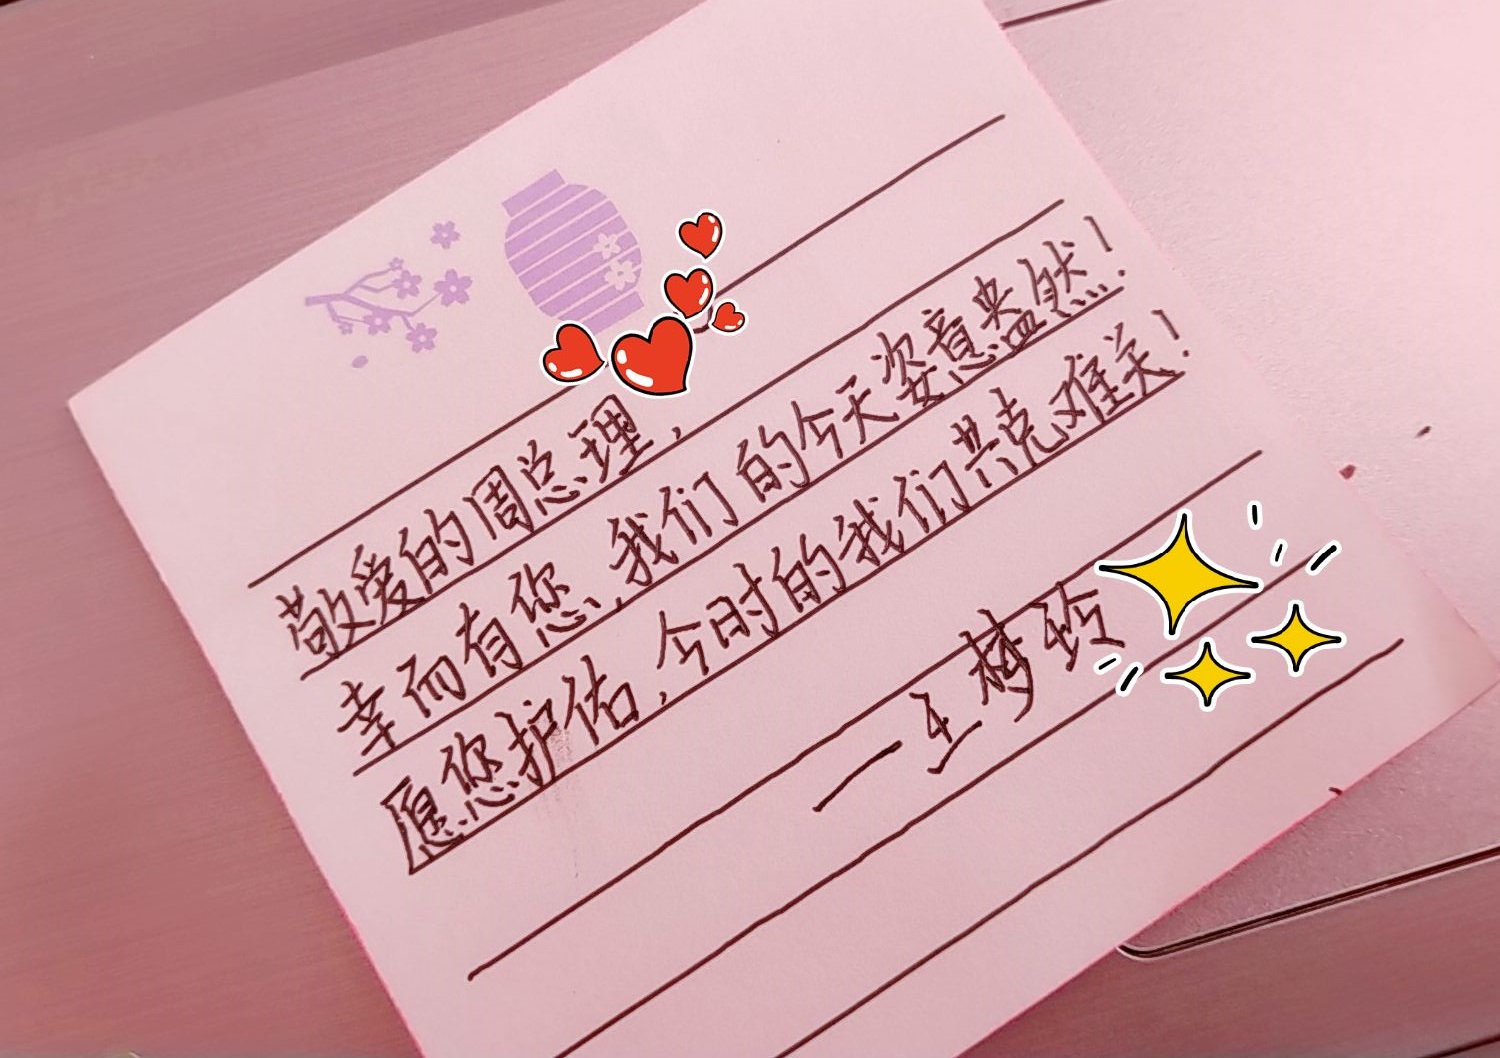 敬爱的周总理，
幸而有您，我们的今天姿意盎然！
愿您护佑，今时的我们共克难关！
一王梦玲